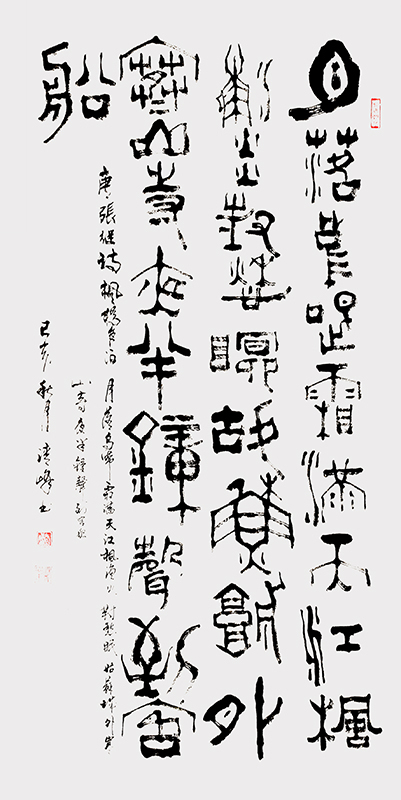 月落烏啼霜滿天江楓
漁火對愁眠姑蘇城外
寒山寺夜半鐘聲到客
船
唐張繼詩楓橋夜泊 月落烏啼霜滿天江楓漁火對愁眠姑蘇城外寒
山寺夜半鐘聲到客船
己亥秋月峰书